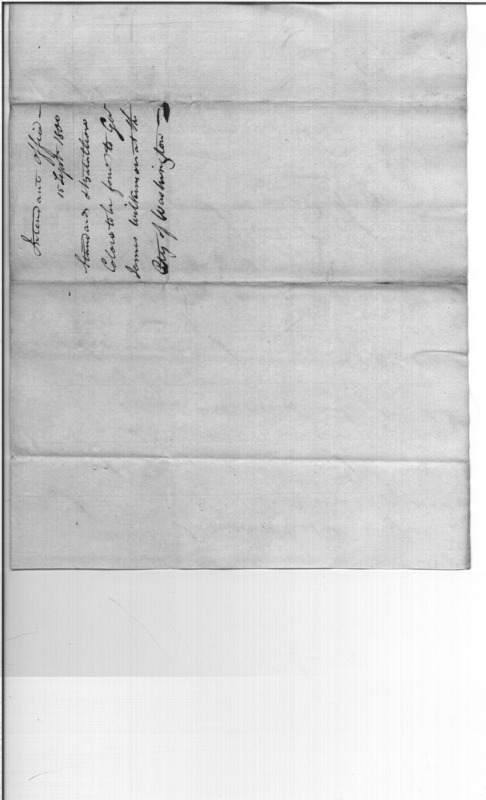 Intendants Office —
15 Sept. 1800
Standards & Battalions
Colours to be forw'd to Genl
James Wilkinson at the
City of Washington —